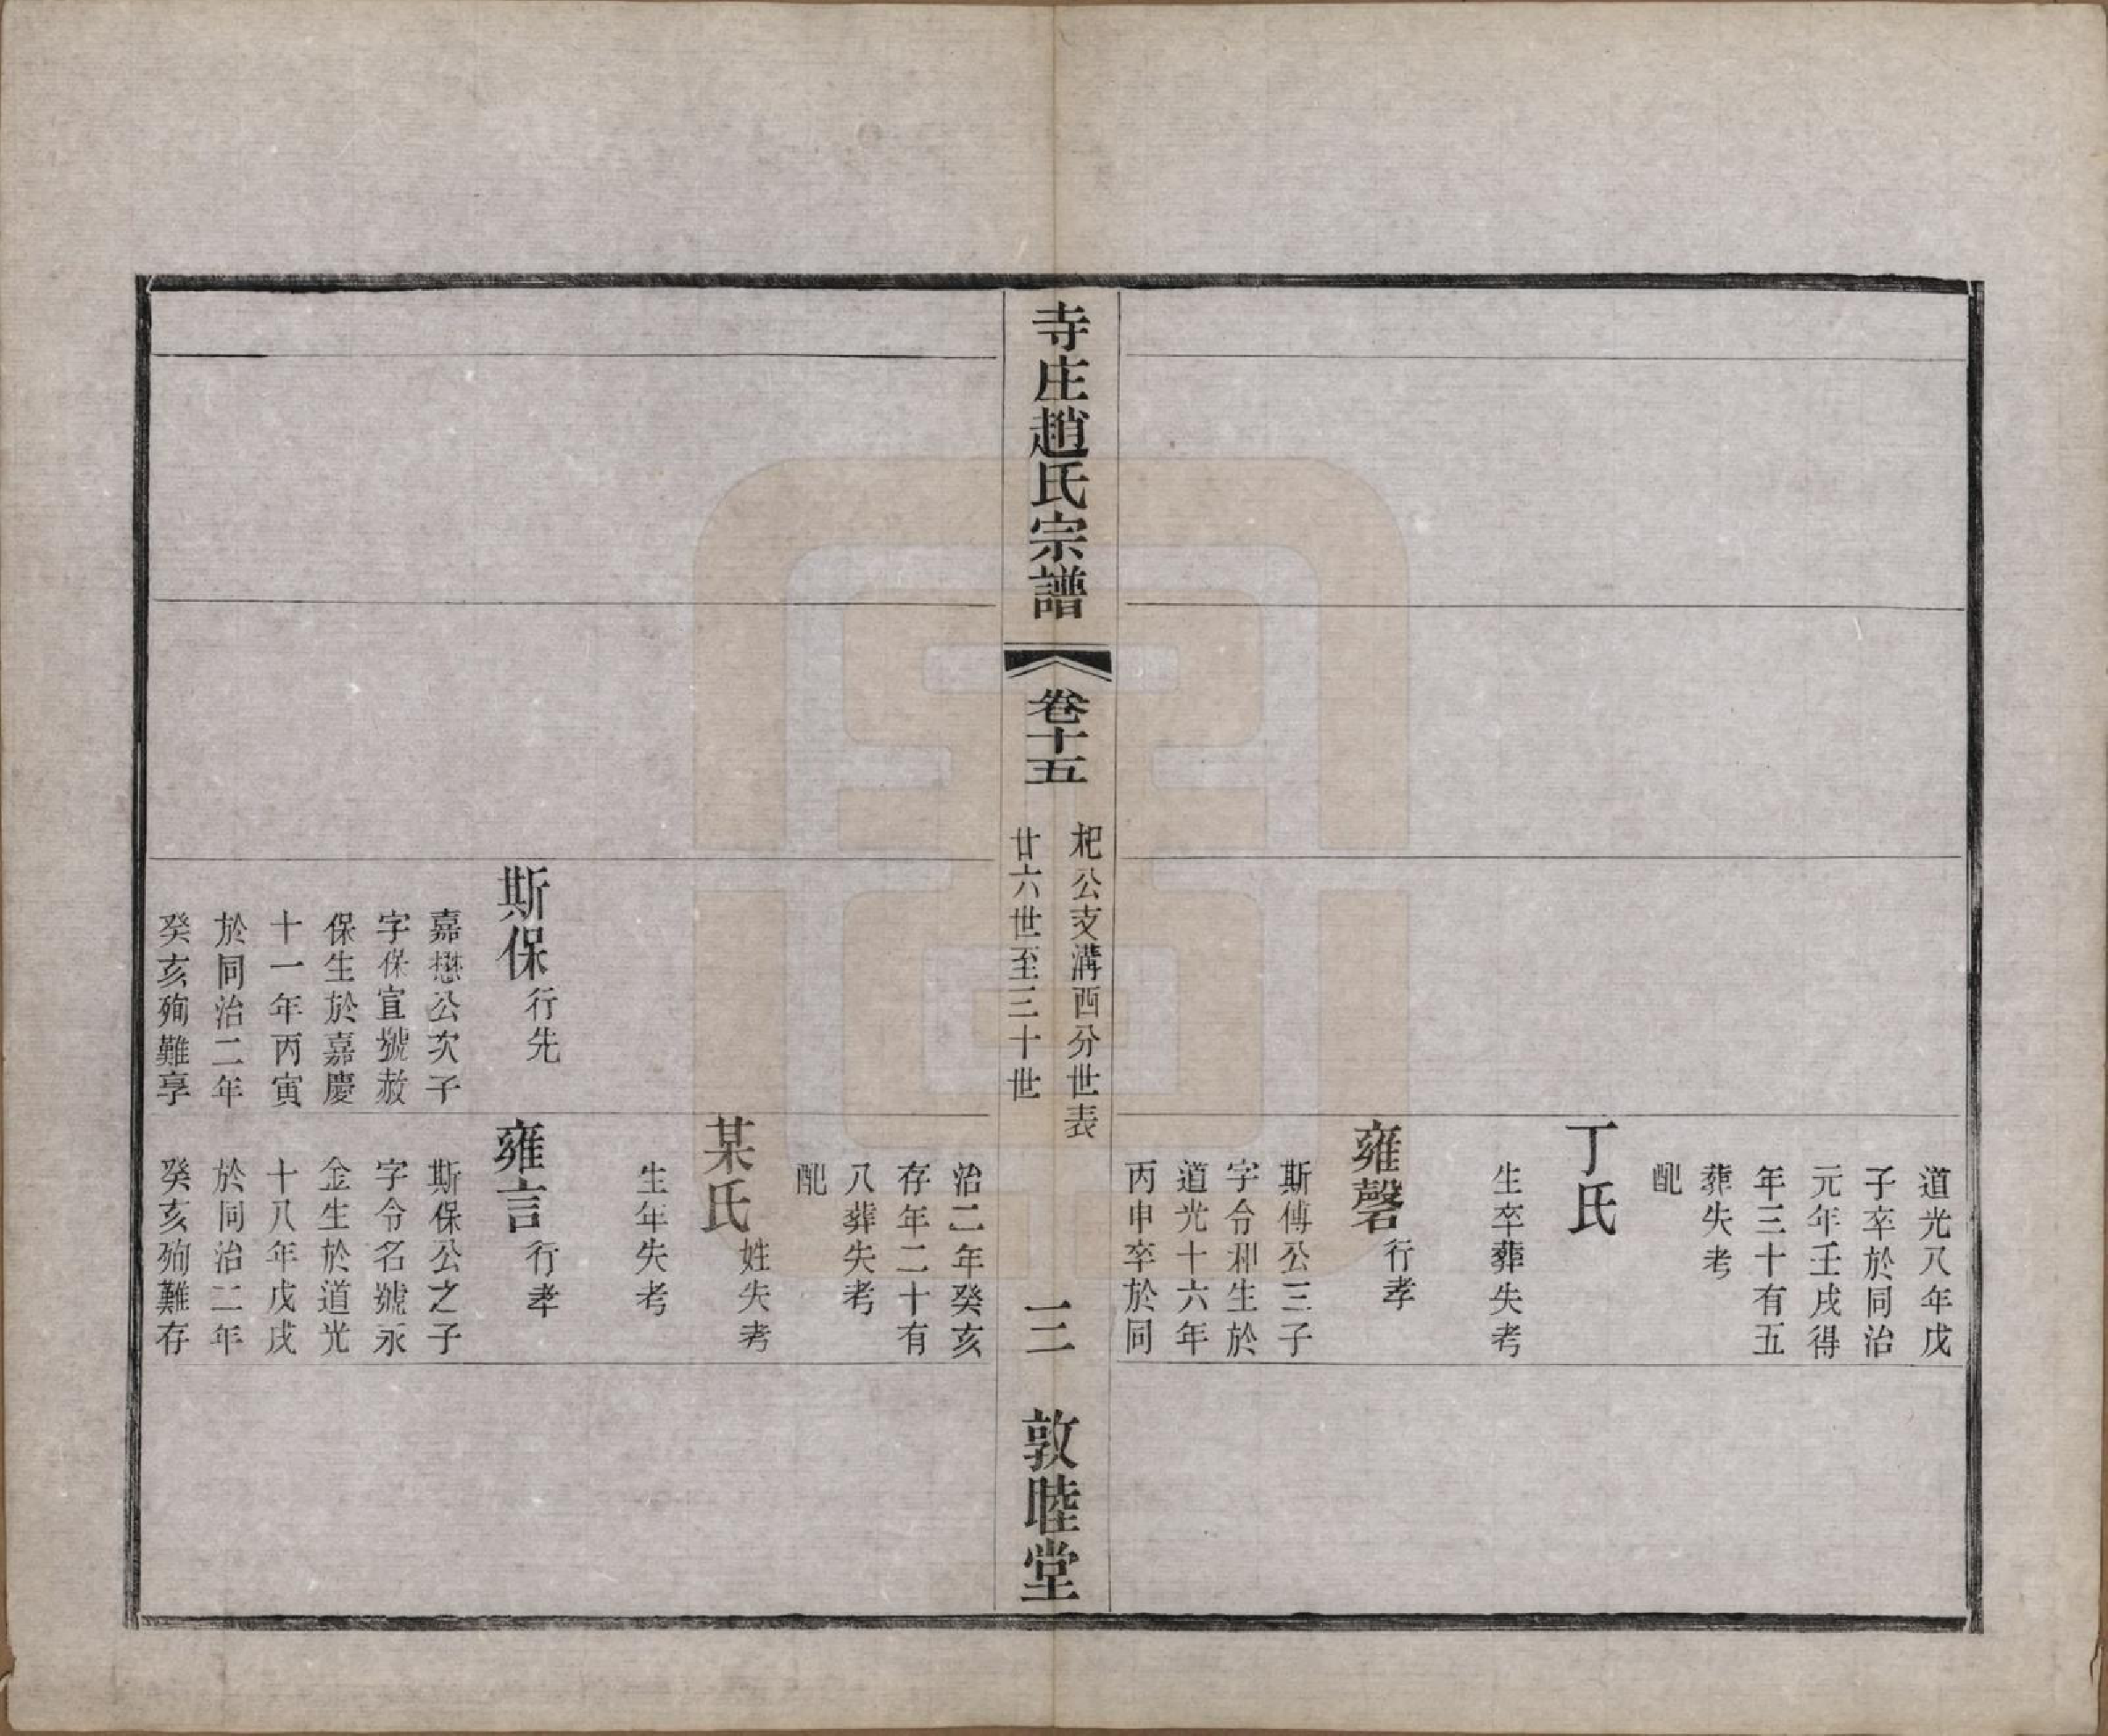 道光八年戊
子卒於同治
元年壬戌得
年三十有五
葬失考
配
丁氏
生卒葬失考
雍磬行孝
斯傅公三子
字令和生於
道光十六年
丙申卒於同
寺庄趙氏宗譜
卷十五
杞公支溝西分世表
廿六世至三十世
三
敦睦堂
治二年癸亥
存年二十有
八葬失考
配
某氏姓失考
生年失考
斯保行先
嘉懋公次子
字保宣號赦
保生於嘉慶
十一年丙寅
於同治二年
癸亥殉難享
雍言行孝
斯保公之子
字令名號永
金生於道光
十八年戊戌
於同治二年
癸亥殉難存